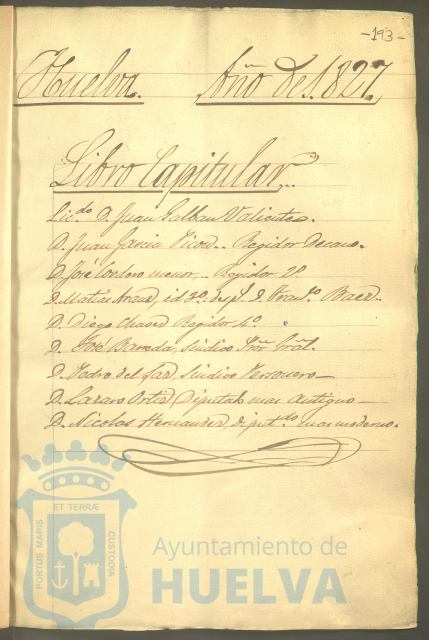 -193-
Huelva. Año de 1827,
Libro Capitular,
Lic.do D. Juan Galban Valiente.
D. Juan Garcia Regidor Decano.
D. José Cordero menor, Regidor 2º
D. Matias id 3º
D. Diego Regidor 4º
D. José Barreda, Sindico Pror. Gral.
D. Pedro del Sindico Personero
D. Lazaro Ortiz Diputado mas antiguo
D. Nicolas Hernandez diput.do mas moderno.
PORTUS MARIS ET TERRÆ CUSTODIA
Ayuntamiento de
HUELVA